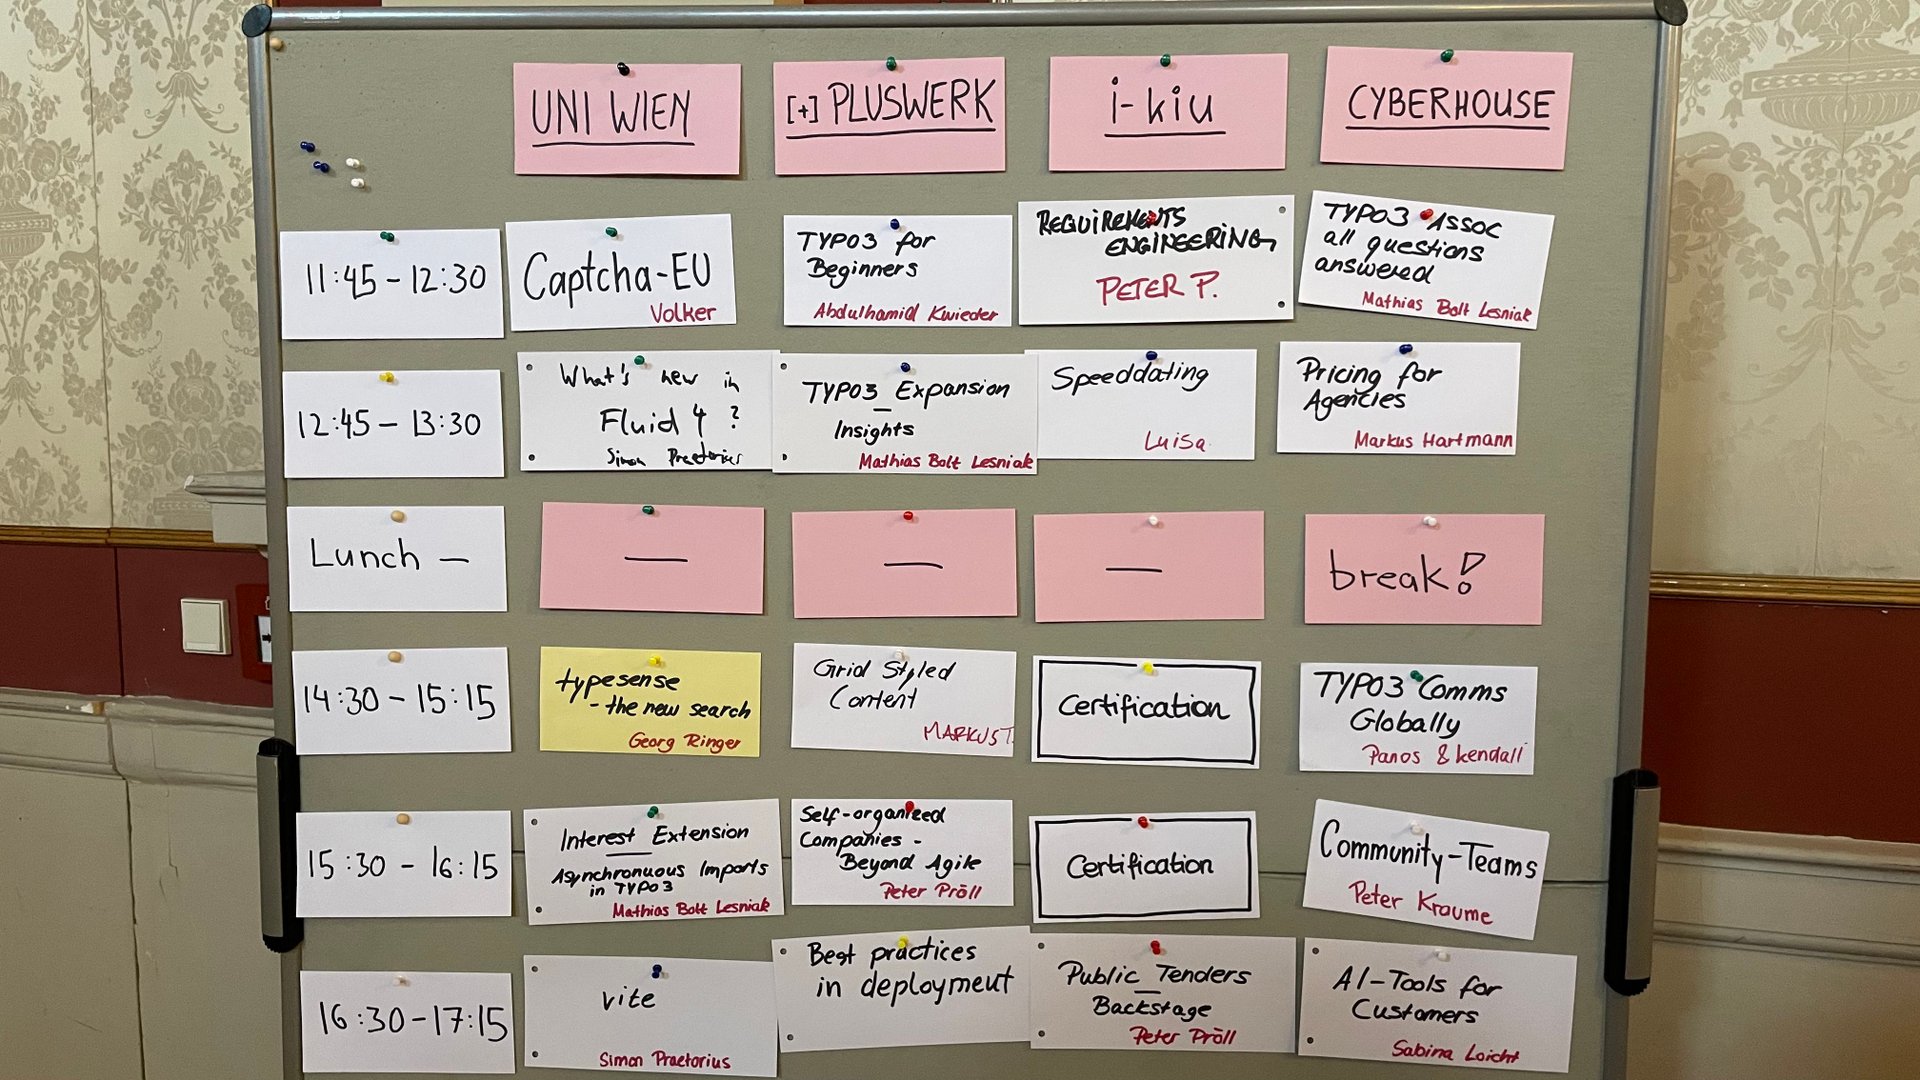 UNI WIEN
[+] PLUSWERK
i-kiu
CYBERHOUSE
11:45 - 12:30
Captcha-EU
Volker
TYPO3 for
Beginners
Abdulhamid Kwieder
REQUIREMENTS
ENGINEERING
PETER P.
TYPO3 Assoc
all questions
answered
Mathias Bolt Lesniak
12:45 - 13:30
What's new in
Fluid 4 ?
Simon Praetorius
TYPO3 Expansion
Insights
Mathias Bolt Lesniak
Speeddating
Luisa
Pricing for
Agencies
Markus Hartmann
Lunch —
—
—
—
break!
14:30 - 15:15
typesense
- the new search
Georg Ringer
Grid Styled
Content
MARKUS T.
Certification
TYPO3 Comms
Globally
Panos & Kendall
15:30 - 16:15
Interest Extension
Asynchronuous Imports
in TYPO3
Mathias Bolt Lesniak
Self-organized
Companies -
Beyond Agile
Peter Pröll
Certification
Community-Teams
Peter Kraume
16:30-17:15
vite
Simon Praetorius
Best practices
in deployment
Public Tenders
Backstage
Peter Pröll
AI-Tools for
Customers
Sabina Loicht